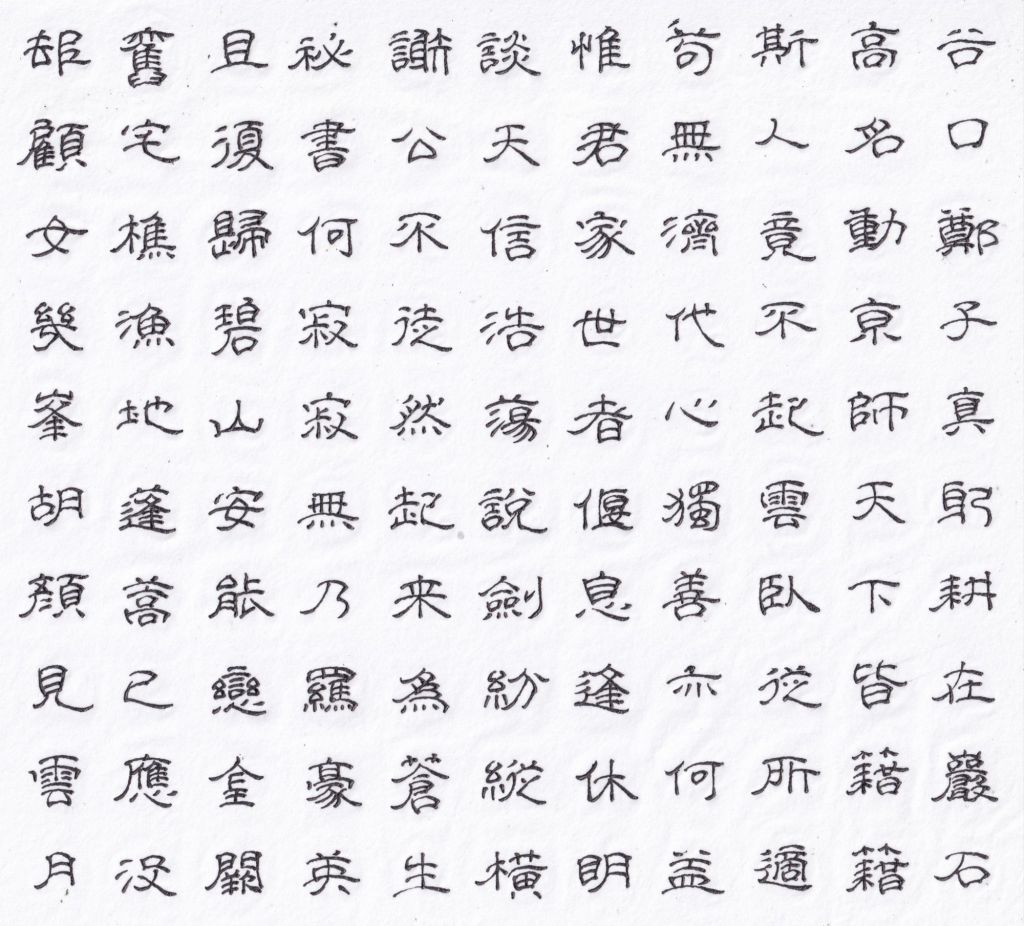 谷口鄭子真躬耕在巖石
高名動京師天下皆籍籍
斯人竟不起雲臥從所適
苟無濟代心獨善亦何益
惟君家世者偃息逢休明
談天信浩蕩說劍紛縱橫
謝公不徒然起来為蒼生
秘書何寂寂無乃羈豪英
且復歸碧山安能戀金闕
舊宅樵漁地蓬蒿已應沒
却顧女幾峯胡顏見雲月